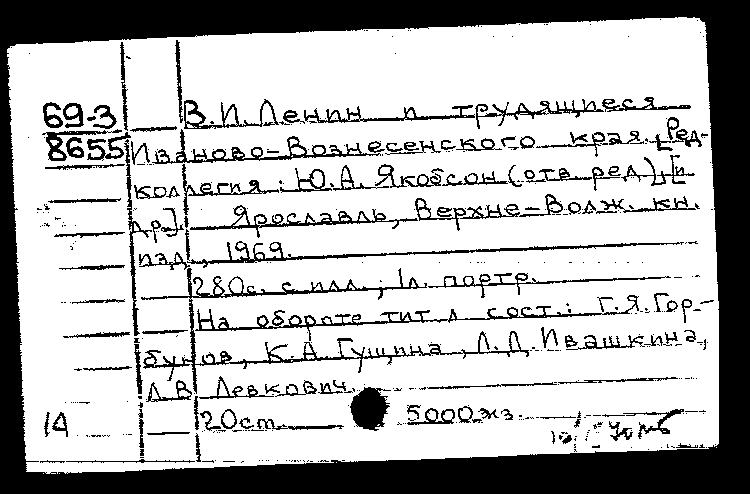 69-3 В.И. Ленин и трудящиеся
8655 Иваново-Вознесенского края. [Ред-
коллегия: Ю.А. Якобсон (отв. ред.), [и
др.]. Ярославль, Верхне-Волж. кн.
изд., 1969.
280с. с илл.; 1л. портр.
На обороте тит. л. сост.: Г.Я. Гор-
бунов, К.А. Гущина, Л.Д. Ивашкина,
Л.В. Левкович.
14 20см. 5000 экз.